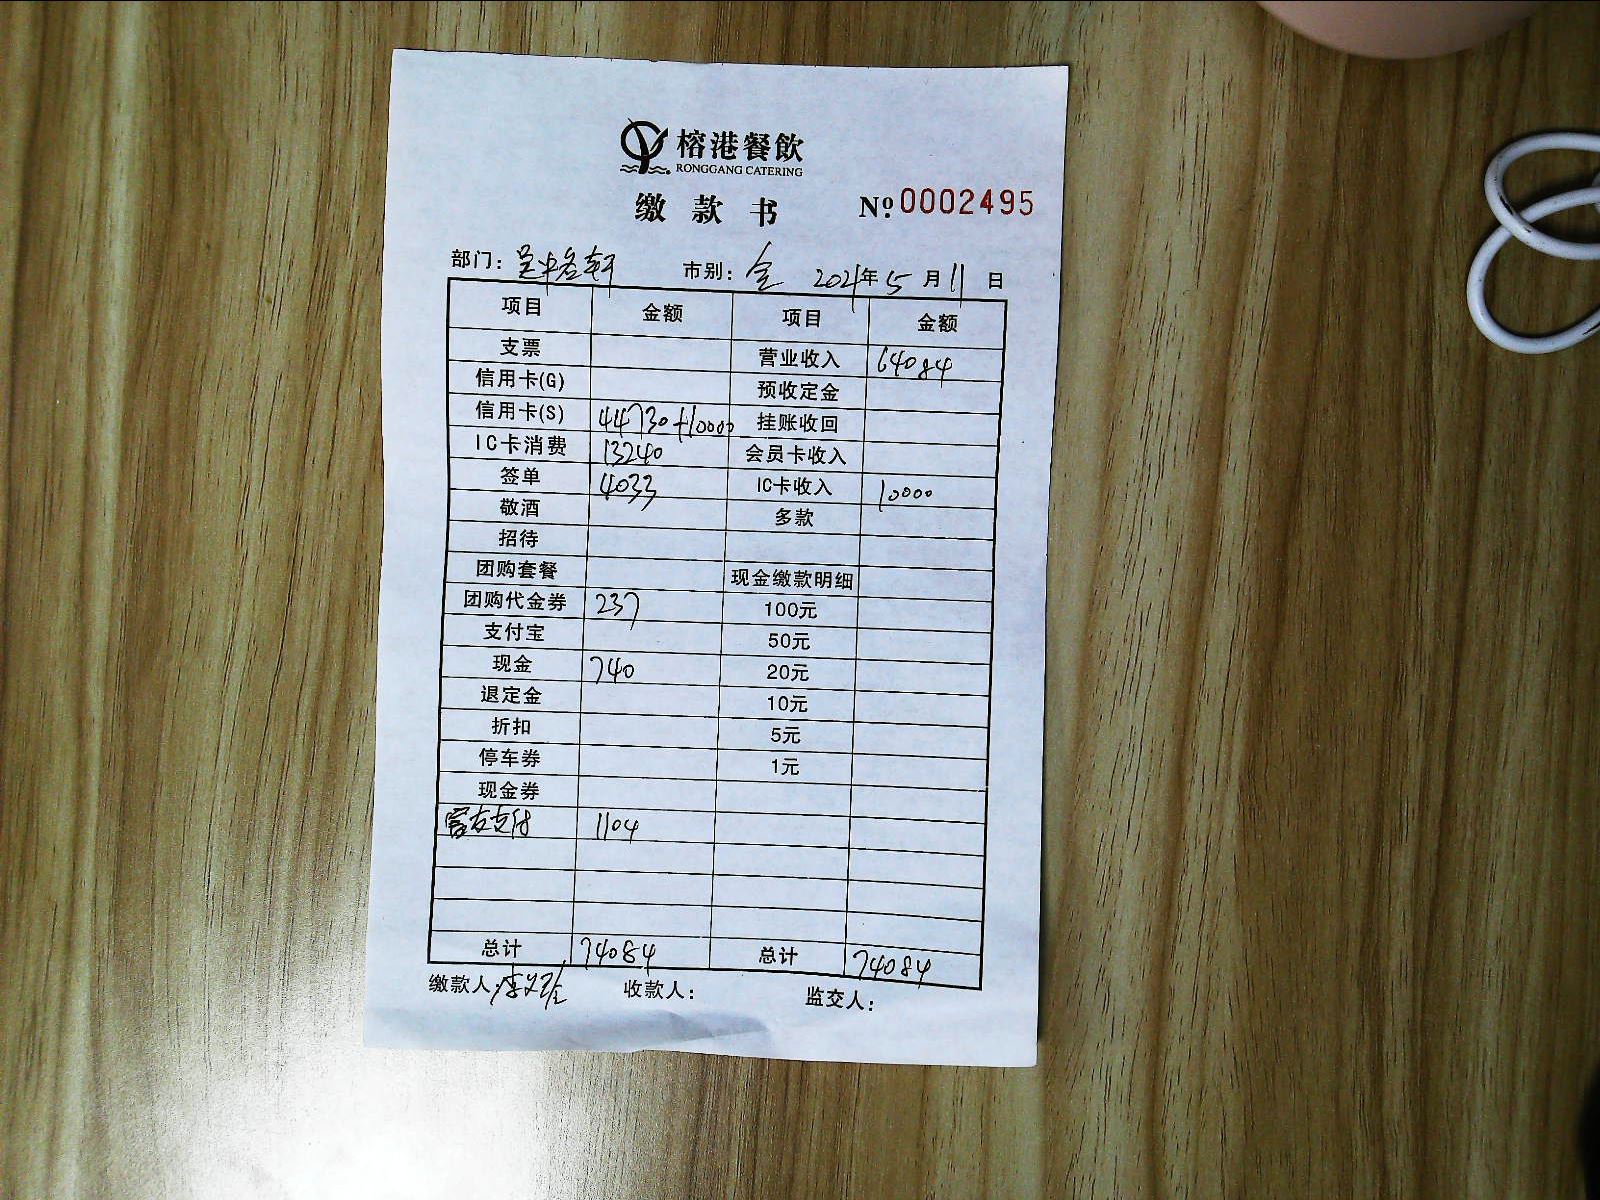 榕港餐飲
RONGGANG CATERING
缴款书 №0002495
部门: 市别: 全 2021年5月11日
项目 金额 项目 金额
支票 营业收入 64084
信用卡(G) 预收定金
信用卡(S) 44730+10000 挂账收回
IC卡消费 13240 会员卡收入
签单 4033 IC卡收入 10000
敬酒 多款
招待
团购套餐 现金缴款明细
团购代金券 237 100元
支付宝 50元
现金 740 20元
退定金 10元
折扣 5元
停车券 1元
现金券
支付 1104
总计 74084 总计 74084
缴款人: 李 收款人: 监交人: